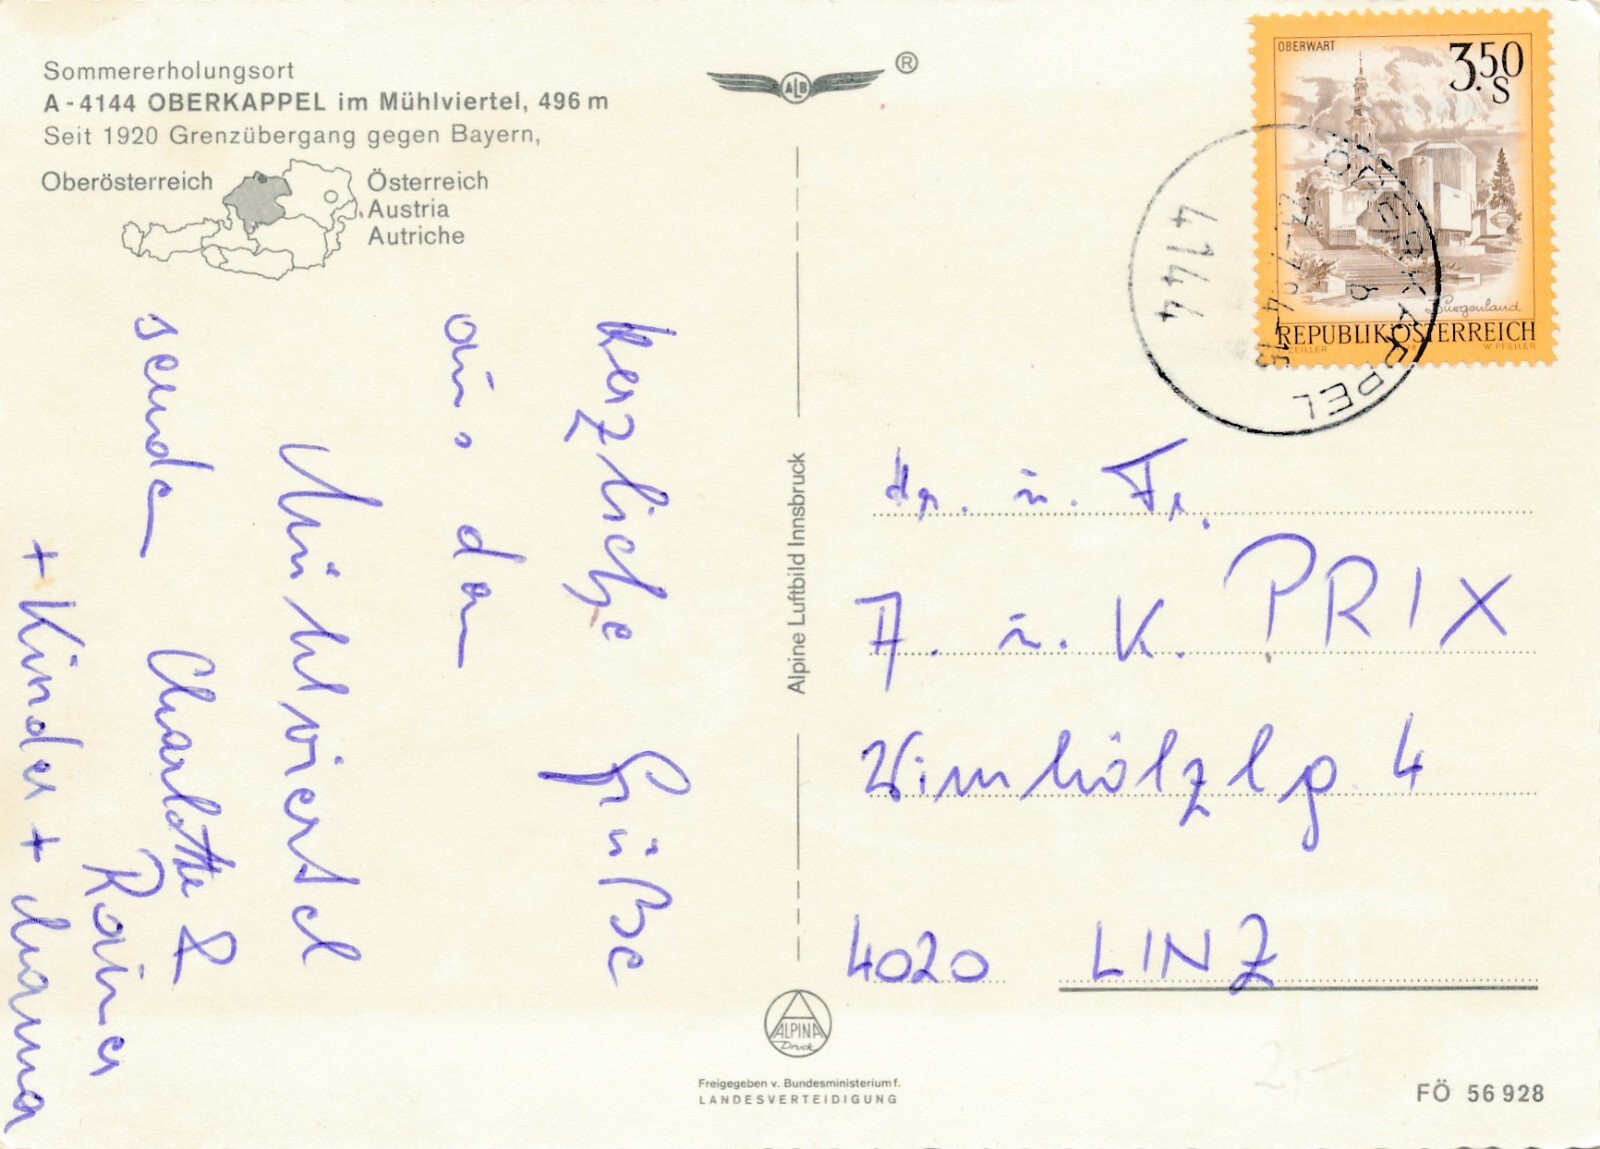 Sommererholungsort
A-4144 OBERKAPPEL im Mühlviertel, 496 m
Seit 1920 Grenzübergang gegen Bayern,
Oberösterreich
Österreich
Austria
Autriche
ALB
®
OBERWART
3.50
S
Burgenland
REPUBLIK ÖSTERREICH
ZEILLER
W. PFEILER
4144 OBERKAPPEL
Herzliche Grüße
aus dem
Mühlviertel
senden Charlotte &
Rainer
+ Kinder + Mama
Alpine Luftbild Innsbruck
Hr. u. Fr.
F. u. K. PRIX
Wimhölzlg 4
4020 LINZ
ALPINA
Druck
Freigegeben v. Bundesministerium f.
LANDESVERTEIDIGUNG
2,-
FÖ 56 928